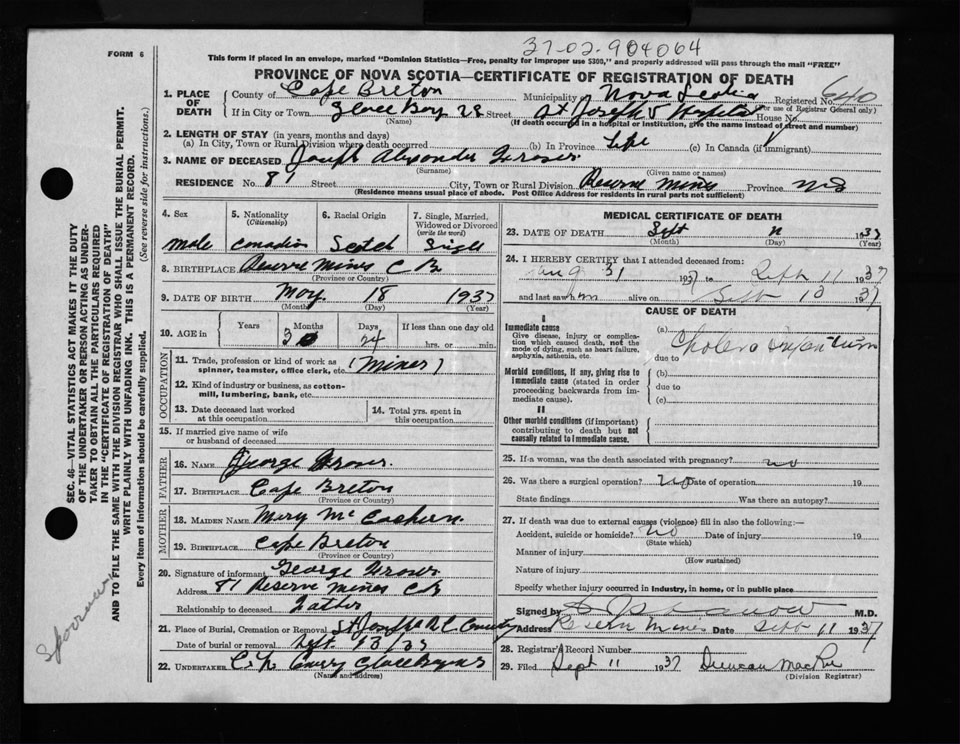 37-02-904064
FORM 6
This form if placed in an envelope, marked "Dominion Statistics—Free, penalty for improper use $300," and properly addressed will pass through the mail "FREE"
PROVINCE OF NOVA SCOTIA—CERTIFICATE OF REGISTRATION OF DEATH
1. PLACE OF DEATH
County of Cape Breton Municipality of Nova Scotia Registered No. 640
(For use of Registrar General only)
If in City or Town Glace Bay 28 Street St Joseph's Hospital House No.
(Name) (If death occurred in a hospital or Institution, give the name instead of street and number)
2. LENGTH OF STAY (in years, months and days)
(a) In City, Town or Rural Division where death occurred (b) In Province Life (c) In Canada (if immigrant)
3. NAME OF DECEASED Joseph Alexander Fraser
(Surname) (Given name or names)
RESIDENCE No. 81 Street City, Town or Rural Division Reserve Mines Province N S
(Residence means usual place of abode. Post Office Address for residents in rural parts not sufficient)
4. Sex
male
5. Nationality (Citizenship)
Canadian
6. Racial Origin
Scotch
7. Single, Married, Widowed or Divorced (write the word)
Single
8. BIRTHPLACE Reserve Mines C B
(Province or Country)
9. DATE OF BIRTH May 18 1937
(Month) (Day) (Year)
10. AGE in Years Months Days If less than one day old
3 24 hrs. or min.
OCCUPATION
11. Trade, profession or kind of work as spinner, teamster, office clerk, etc. (Miner)
12. Kind of industry or business, as cotton-mill, lumbering, bank, etc.
13. Date deceased last worked at this occupation
14. Total yrs. spent in this occupation
15. If married give name of wife or husband of deceased
FATHER
16. NAME George Fraser
17. BIRTHPLACE Cape Breton
(Province or Country)
MOTHER
18. MAIDEN NAME Mary Mc Eachern
19. BIRTHPLACE Cape Breton
(Province or Country)
20. Signature of informant George Fraser
Address 81 Reserve Mines C B
Relationship to deceased Father
21. Place of Burial, Cremation or Removal St Josephs R. C. Cemetery
Date of burial or removal Sept 13/37
22. UNDERTAKER Glace Bay N S
(Name and address)
MEDICAL CERTIFICATE OF DEATH
23. DATE OF DEATH Sept 11 1937
(Month) (Day) (Year)
24. I HEREBY CERTIFY that I attended deceased from:
Aug 31 1937 to Sept 11 1937
and last saw him alive on Sept 10 37
CAUSE OF DEATH
I
Immediate cause
Give disease, injury or complication which caused death, not the mode of dying, such as heart failure, asphyxia, asthenia, etc.
(a) Cholera Infantum
due to
Morbid conditions, if any, giving rise to immediate cause (stated in order proceeding backwards from immediate cause).
(b)
due to
(c)
II
Other morbid conditions (if important) contributing to death but not causally related to immediate cause.
25. If a woman, was the death associated with pregnancy? no
26. Was there a surgical operation? no Date of operation 19
State findings Was there an autopsy?
27. If death was due to external causes (violence) fill in also the following:—
Accident, suicide or homicide? no Date of injury 19
(State which)
Manner of injury
(How sustained)
Nature of injury
Specify whether injury occurred in industry, in home, or in public place
Signed by M.D.
Address Reserve Mines Date Sept 11 1937
28. Registrar's Record Number
29. Filed Sept 11 1937 Duncan MacRae
(Division Registrar)
SEC. 46—VITAL STATISTICS ACT MAKES IT THE DUTY
OF THE UNDERTAKER OR PERSON ACTING AS UNDER-
TAKER TO OBTAIN ALL THE PARTICULARS REQUIRED
IN THE "CERTIFICATE OF REGISTRATION OF DEATH"
AND TO FILE THE SAME WITH THE DIVISION REGISTRAR WHO SHALL ISSUE THE BURIAL PERMIT.
WRITE PLAINLY WITH UNFADING INK. THIS IS A PERMANENT RECORD.
Every item of information should be carefully supplied. (See reverse side for instructions.)